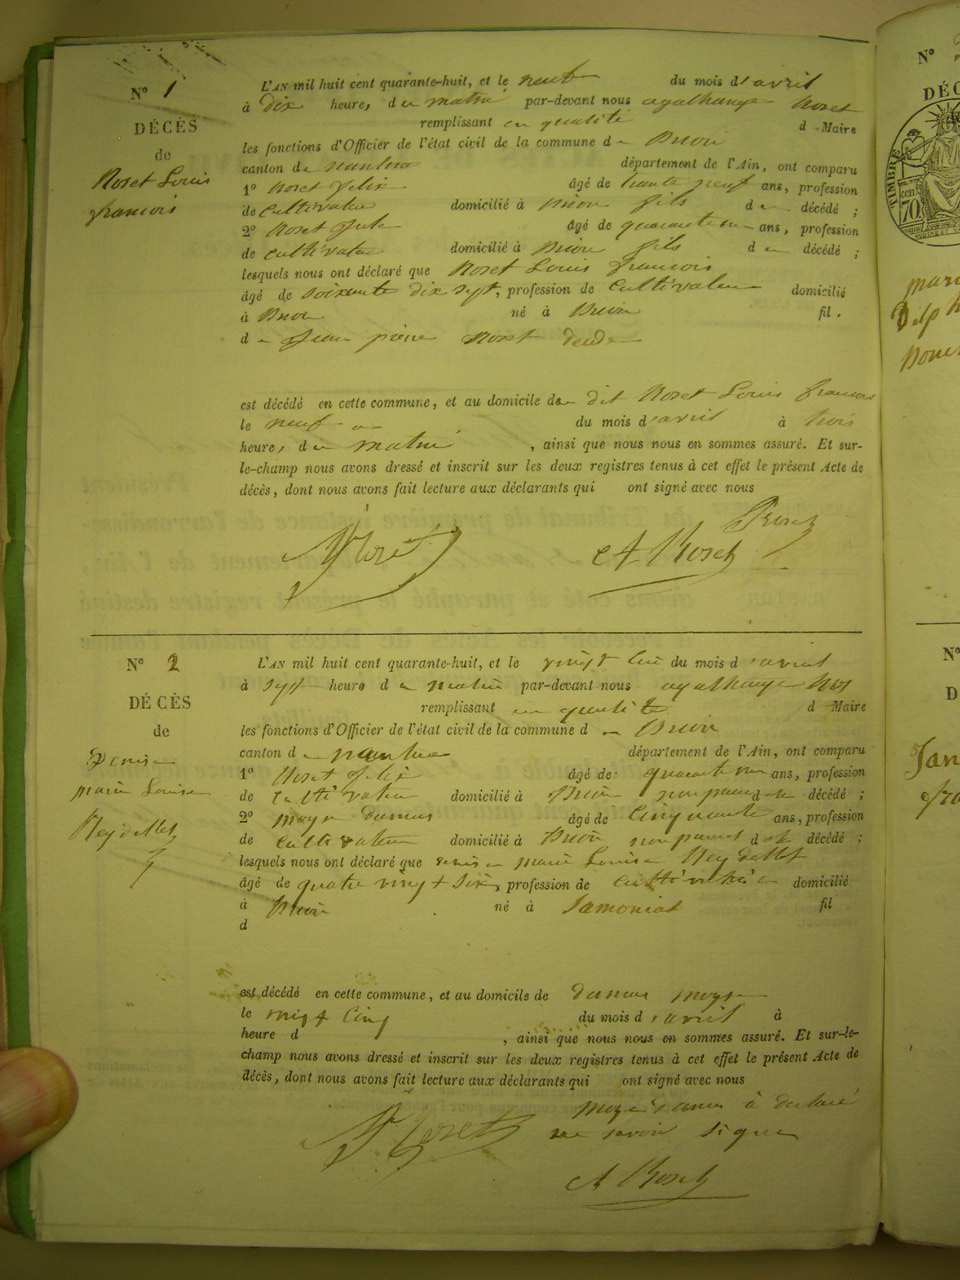 N° 1
DÉCÈS
de
Roset Louis
francois
L'AN mil huit cent quarante-huit, et le neuf du mois d'avril
à dix heure, du matin par-devant nous agathange Roset
remplissant en qualité d Maire
les fonctions d'Officier de l'état civil de la commune de Brion
canton de nantua département de l'Ain, ont comparu
1° Roset felix âgé de trente neuf ans, profession
de cultivateur domicilié à Brion fils du décédé ;
2° Roset âgé de quarante un ans, profession
de cultivateur domicilié à Brion fils du décédé ;
lesquels nous ont déclaré que Roset Louis francois
âgé de soixante dix sept, profession de cultivateur domicilié
à Brion né à Brion fil.
de Jean pierre Roset
est décédé en cette commune, et au domicile du dit Roset Louis francois
le neuf du mois d'avril à trois
heure, du matin , ainsi que nous nous en sommes assuré. Et sur-
le-champ nous avons dressé et inscrit sur les deux registres tenus à cet effet le présent Acte de
décès, dont nous avons fait lecture aux déclarants qui ont signé avec nous
Roset
A Roset
N° 2
DÉCÈS
de
Denise
marie Louise
L'AN mil huit cent quarante-huit, et le vingt du mois d'avril
à sept heure du matin par-devant nous agathange
remplissant en qualité d Maire
les fonctions d'Officier de l'état civil de la commune de Brion
canton de nantua département de l'Ain, ont comparu
1° Roset felix âgé de quarante un ans, profession
de cultivateur domicilié à Brion non parent de la décédé ;
2° Moyse Dumas âgé de cinquante ans, profession
de cultivateur domicilié à Brion non parent de la décédé ;
lesquels nous ont déclaré que denise marie Louise
âgé de quatre vingt six, profession de cultivatrice domicilié
à Brion né à Samoniat fil
d
est décédé en cette commune, et au domicile de dumas moyse
le vingt cinq du mois d'avril à
heure d , ainsi que nous nous en sommes assuré. Et sur-le-
champ nous avons dressé et inscrit sur les deux registres tenus à cet effet le présent Acte de
décès, dont nous avons fait lecture aux déclarants qui ont signé avec nous
moyse dumas à declaré
ne savoir signer
A Roset
N°
TIMBRE
70
N°